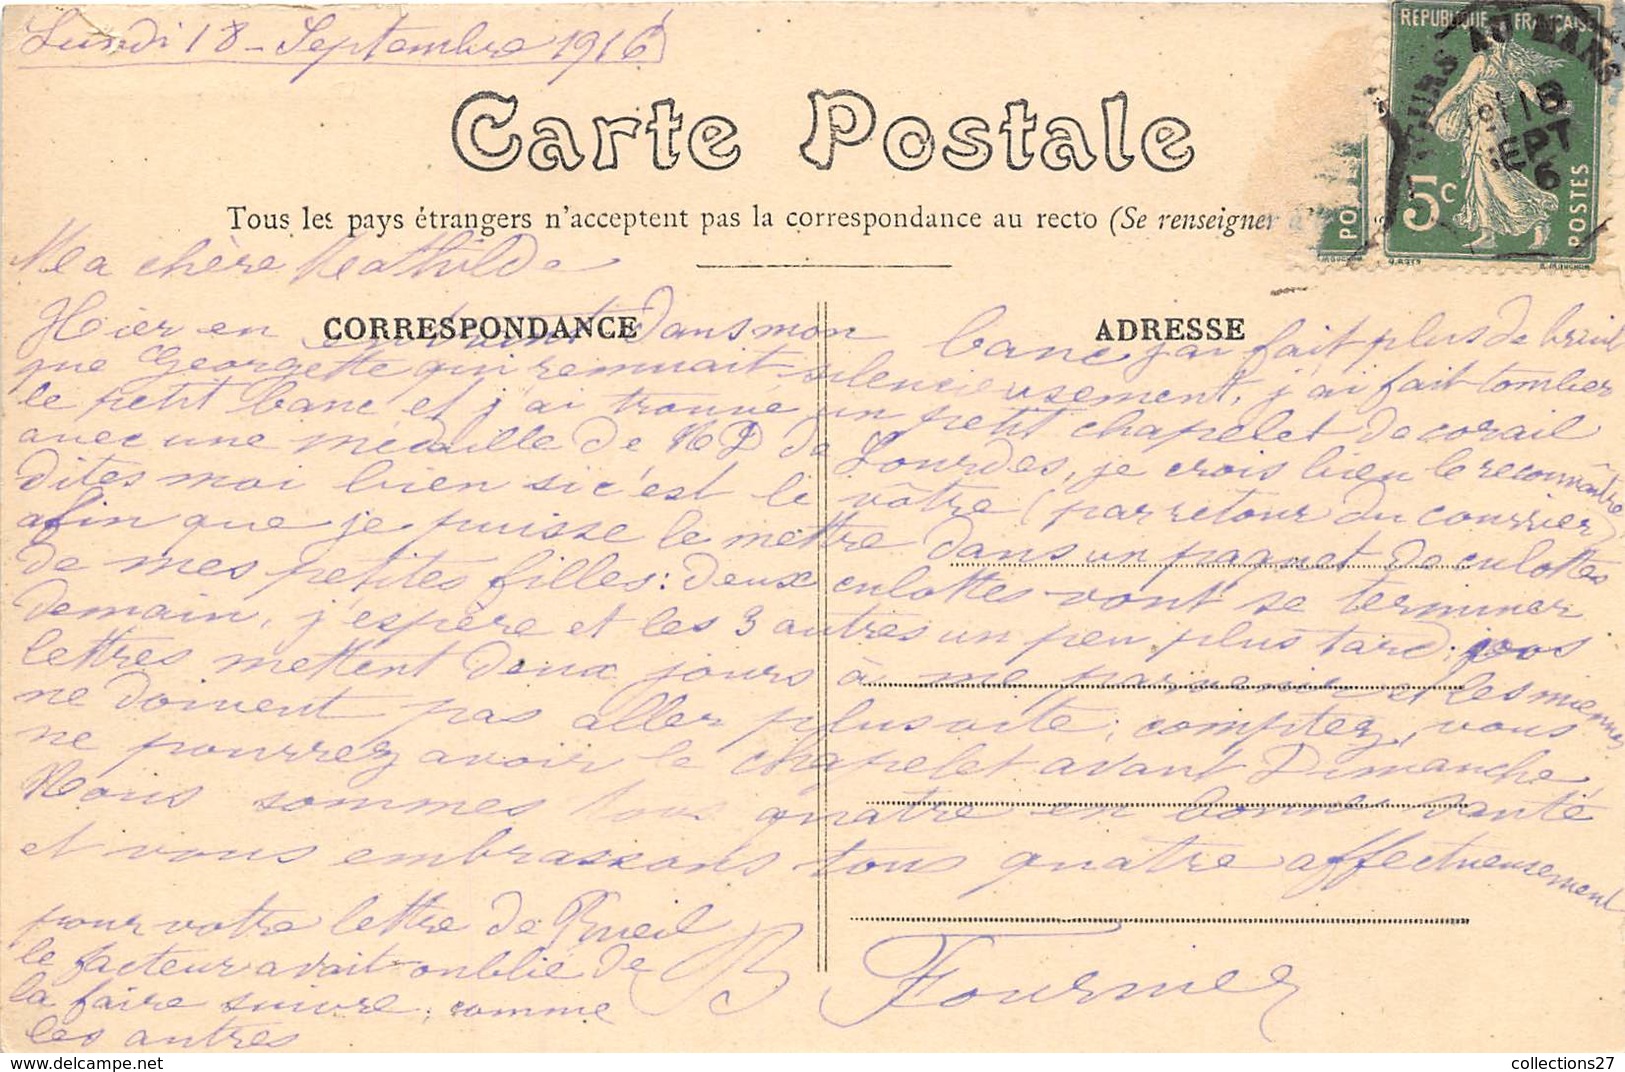 Lundi 18 - Septembre 1916
RÉPUBLIQUE FRANÇAISE
TOURS AU MANS
5c
POSTES
Carte Postale
Tous les pays étrangers n'acceptent pas la correspondance au recto (Se renseigner à
Ma chère Mathilde
CORRESPONDANCE
ADRESSE
Hier en entrant dans mon banc j'ai fait plus de bruit
que Georgette qui remuait silencieusement, j'ai fait tomber
le petit banc et j'ai trouvé un petit chapelet de corail
avec une médaille de N D de Lourdes, je crois bien le reconnaître
dites moi bien si c'est le vôtre (par retour du courrier)
afin que je puisse le mettre dans un paquet de culottes
de mes petites filles : deux culottes vont se terminer
demain, j'espère et les 3 autres un peu plus tard ; vos
lettres mettent deux jours à me parvenir et les miennes
ne doivent pas aller plus vite ; comptez, vous
ne pourrez avoir le chapelet avant Dimanche
Nous sommes tous quatre en bonne santé
et vous embrassons tous quatre affectueusement
pour votre lettre de Rueil
le facteur avait oublié de
la faire suivre, comme
les autres
B Fournier
collections27